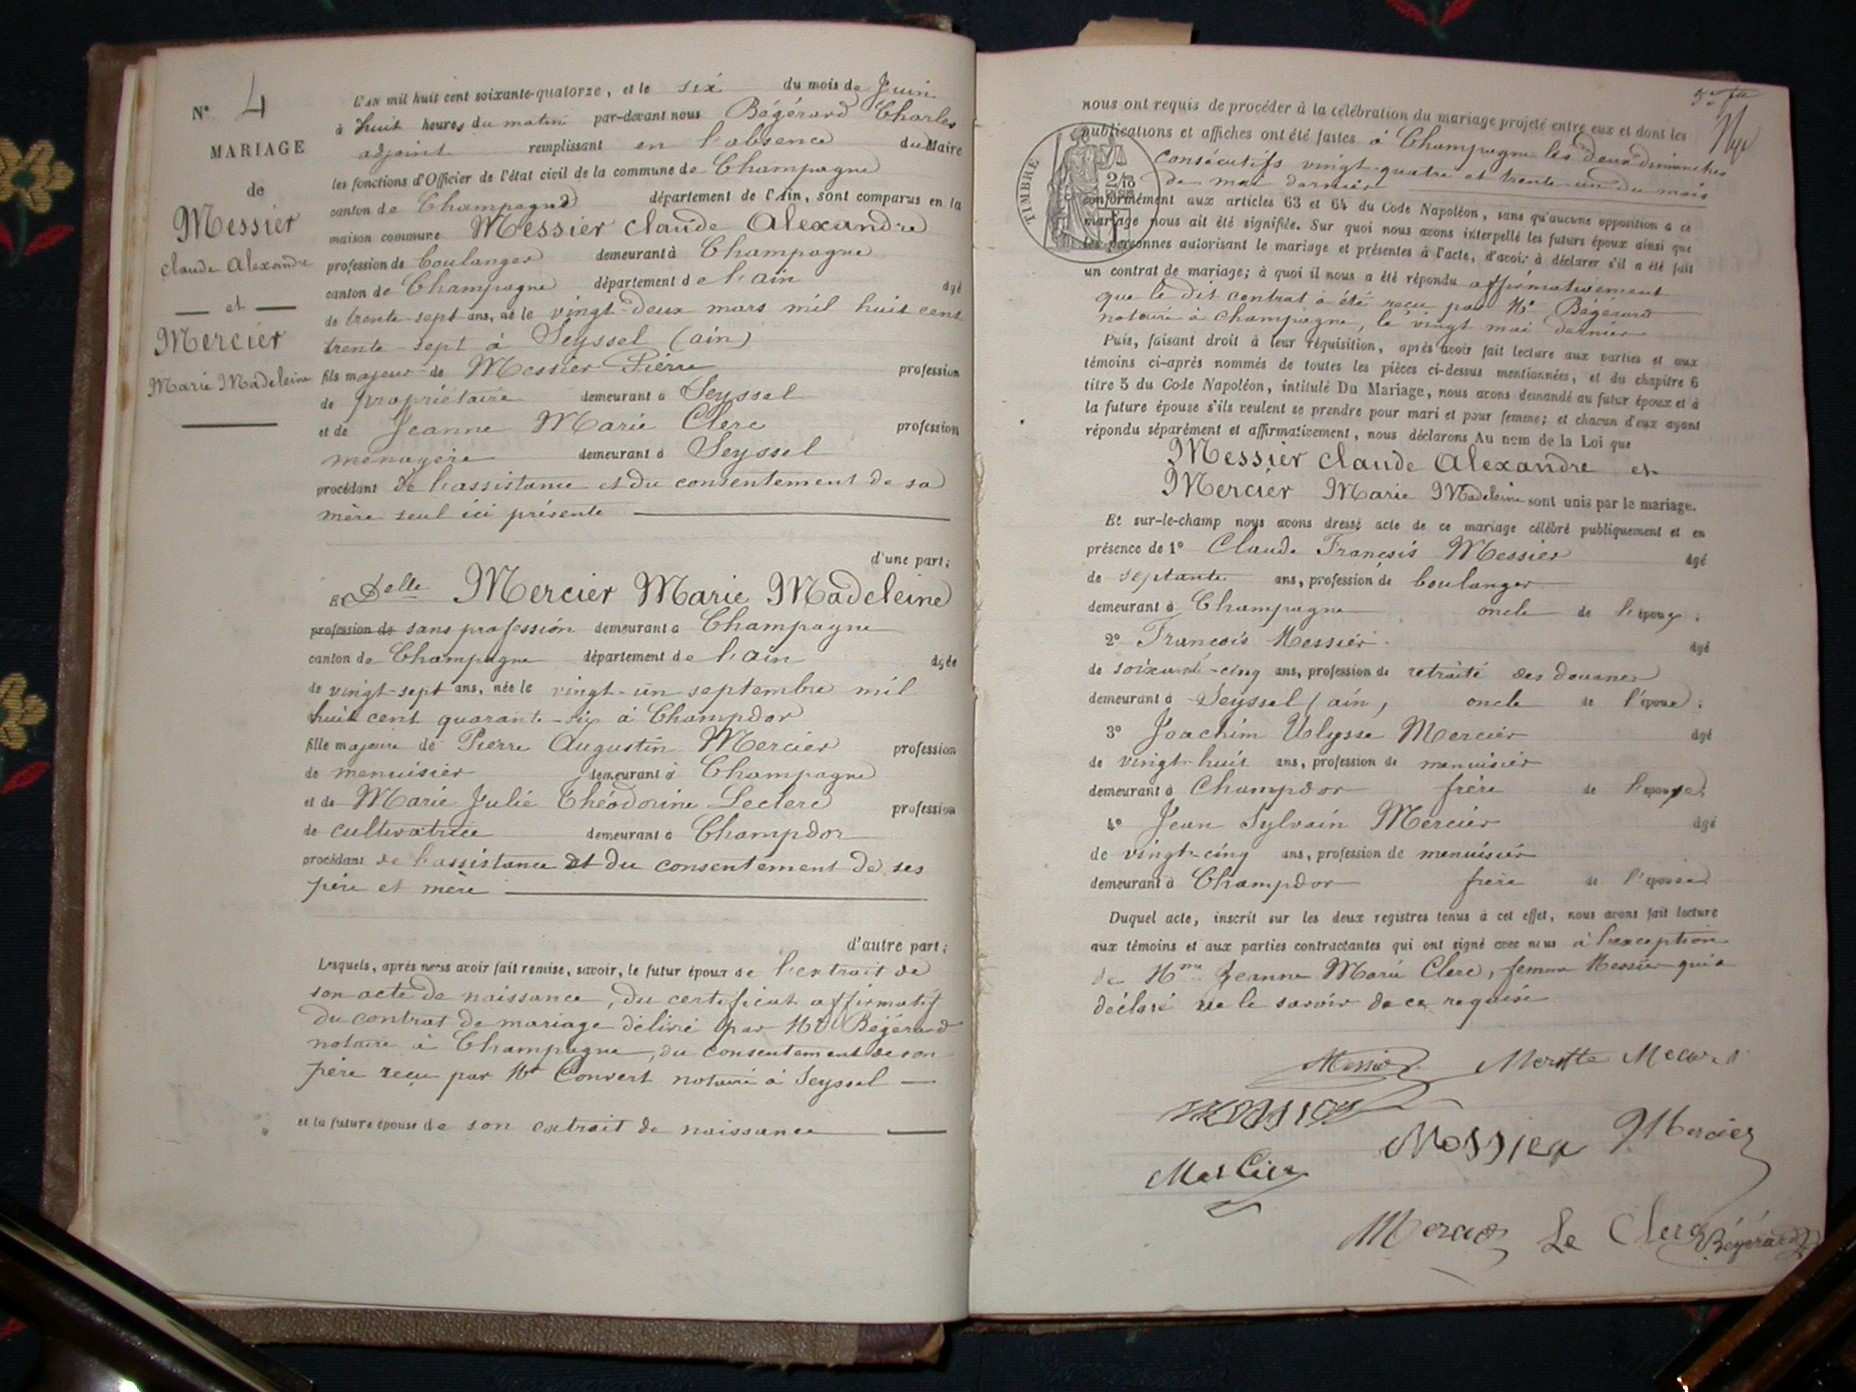 N° 4
MARIAGE
de
Messier
Claude Alexandre
et
Mercier
Marie Madeleine
L'an mil huit cent soixante-quatorze, et le six du mois de Juin
à huit heures du matin par-devant nous Bégérard Charles
adjoint remplissant en l'absence du Maire
les fonctions d'Officier de l'état civil de la commune de Champagne
canton de Champagne département de l'Ain, sont comparus en la
maison commune Messier Claude Alexandre
profession de boulanger demeurant à Champagne
canton de Champagne département de l'ain âgé
de trente-sept ans, né le vingt-deux mars mil huit cent
trente-sept à Seyssel (ain)
fils majeur de Messier Pierre profession
de propriétaire demeurant à Seyssel
et de Jeanne Marie Clerc profession
ménagère demeurant à Seyssel
procédant de l'assistance et du consentement de sa
mère seul ici présente
d'une part;
Et Delle Mercier Marie Madeleine
profession de sans profession demeurant à Champagne
canton de Champagne département de l'ain âgée
de vingt-sept ans, née le vingt-un septembre mil
huit cent quarante-six à Champdor
fille majeure de Pierre Augustin Mercier profession
de menuisier demeurant à Champagne
et de Marie Julie Théodorine Leclerc profession
de cultivatrice demeurant à Champdor
procédant de l'assistance et du consentement de ses
père et mère
d'autre part;
Lesquels, après nous avoir fait remise, savoir, le futur époux de l'extrait de
son acte de naissance, du certificat affirmatif
du contrat de mariage délivré par Me Bégérard
notaire à Champagne, du consentement de son
père reçu par Me Convert notaire à Seyssel
et la future épouse de son extrait de naissance
nous ont requis de procéder à la célébration du mariage projeté entre eux et dont les
publications et affiches ont été faites à Champagne les deux dimanches
consécutifs vingt-quatre et trente-un du mois
de mai dernier
TIMBRE
conformément aux articles 63 et 64 du Code Napoléon, sans qu'aucune opposition à ce
mariage nous ait été signifiée. Sur quoi nous avons interpellé les futurs époux ainsi que
les personnes autorisant le mariage et présentes à l'acte, d'avoir à déclarer s'il a été fait
un contrat de mariage; à quoi il nous a été répondu affirmativement
que le dit contrat à été reçu par Me Bégérard
notaire à Champagne, le vingt mai dernier
Puis, faisant droit à leur réquisition, après avoir fait lecture aux parties et aux
témoins ci-après nommés de toutes les pièces ci-dessus mentionnées, et du chapitre 6
titre 5 du Code Napoléon, intitulé Du Mariage, nous avons demandé au futur époux et à
la future épouse s'ils veulent se prendre pour mari et pour femme; et chacun d'eux ayant
répondu séparément et affirmativement, nous déclarons Au nom de la Loi que
Messier Claude Alexandre et
Mercier Marie Madeleine sont unis par le mariage.
Et sur-le-champ nous avons dressé acte de ce mariage célébré publiquement et en
présence de 1° Claude François Messier âgé
de septante ans, profession de boulanger
demeurant à Champagne oncle de l'époux;
2° François Messier âgé
de soixante-cinq ans, profession de retraité des douanes
demeurant à Seyssel (ain) oncle de l'époux;
3° Joachim Ulysse Mercier âgé
de vingt-huit ans, profession de menuisier
demeurant à Champdor frère de l'épouse;
4° Jean Sylvain Mercier âgé
de vingt-cinq ans, profession de menuisier
demeurant à Champdor frère de l'épouse
Duquel acte, inscrit sur les deux registres tenus à cet effet, nous avons fait lecture
aux témoins et aux parties contractantes qui ont signé avec nous à l'exception
de Mme Jeanne Marie Clerc, femme Messier qui a
déclaré ne le savoir de ce requise
Messier
Messier
Messier
J. Mercier
Mercier
Mercier Le Clerc Bégérard